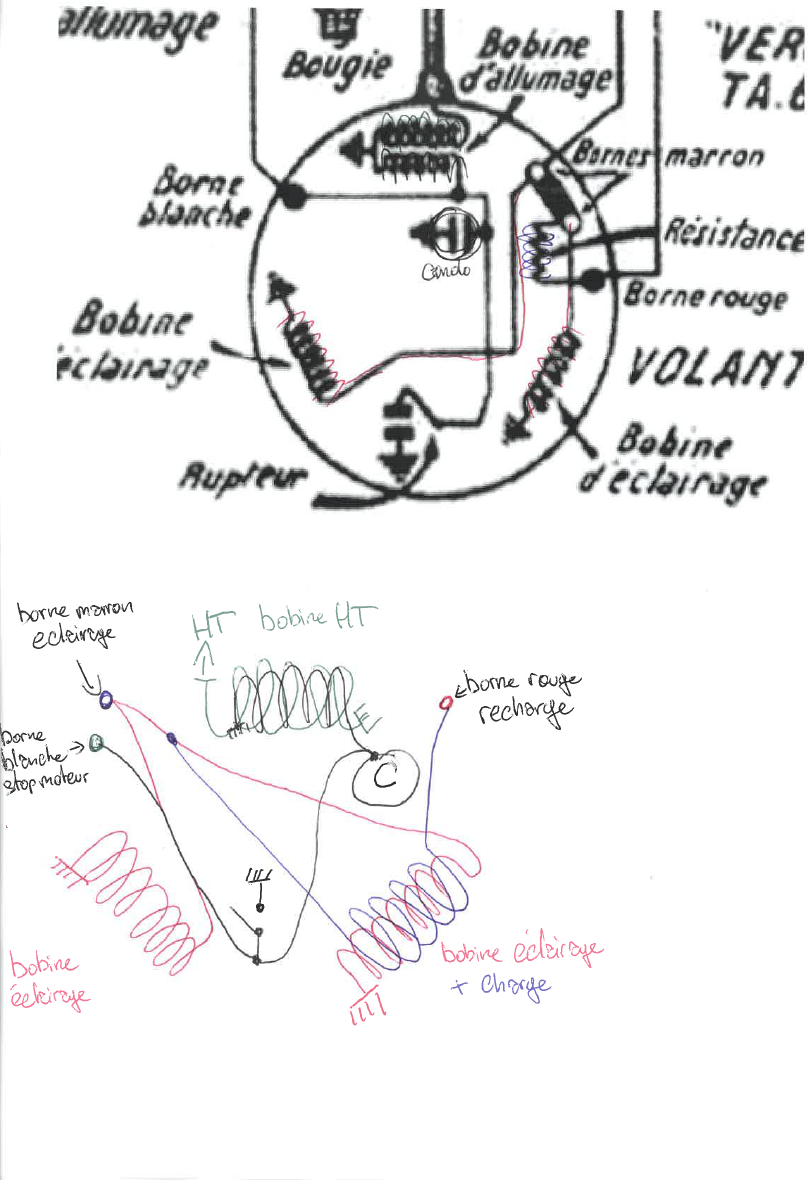 allumage
Bougie
Bobine
d'allumage
"VER
TA.
Bornes marron
Borne
blanche
Résistance
Condo
Borne rouge
Bobine
éclairage
VOLANT
Bobine
d'éclairage
Rupteur
borne marron
eclairage
HT bobine HT
borne rouge
recharge
borne
blanche
stop moteur
C
bobine
éclairage
bobine éclairage
+ charge